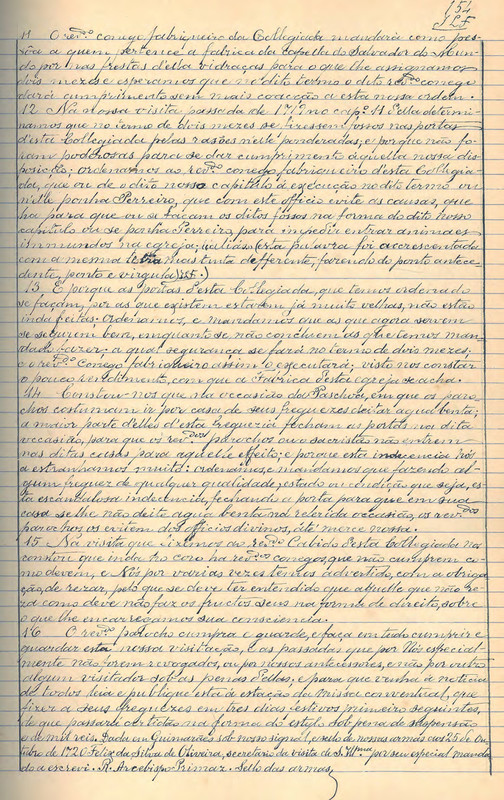 154
J.L.F.
11 O revdo conego fabriqueiro da Collegiada mandará como pes-
sôa a quem pertence a fabrica da capella do Salvador do Mun-
do por nas frestas della vidraças para o que lhe assignamos
dois mezes e esperamos que no dito termo o dito revdo conego
dará cumprimento sem mais coacção a esta nossa ordem.
12 Na nossa visita passada de 17 no cap. 11 della determi-
namos que no termo de dois mezes se fizessem fossos nas portas
desta Collegiada pelas rasões nelle ponderadas; e porque não fo-
ram poderosas para se dar cumprimento áquella nossa dis-
posição; ordenamos ao revdo conego fabriqueiro desta Collegia-
da, que ou dê o dito nosso capitulo á execução no dito termo ou
nelle ponha Perreiro, que com este officio evite as causas, que
ha para que ou se façam os ditos fossos na forma do dito nosso
capitulo ou se ponha Perreiro, para impedir entrar animaes
immundos na egreja; (esta palavra foi accrescentada
com a mesma letra mas tinta differente, fazendo do ponto antece-
dente, ponto e virgula) J.L.F.)
13. E porque as portas desta Collegiada, que temos ordenado
se façam, por as que existem estarem já muito velhas, não estão
inda feitas: ordenamos, e mandamos que as que agora servem
se segurem bem, emquanto se não concluem as que temos man-
dado fazer; a qual segurança se fará no termo de dois mezes;
e o revdo Conego fabriqueiro assim o executará; visto nos constar
o pouco rendimento, com que a Fabrica desta egreja se acha.
14 Constou-nos que na occasião da Paschoa, em que os paro-
chos costumam ir por casa de seus freguezes deitar agua benta;
a maior parte d'elles d'esta freguezia fecham as portas na dita
occasião, para que os revdos parochos ou o sacristão não entrem
nas ditas casas para aquelle effeito; e porque esta indecencia nós
a estranhamos muito: ordenamos, e mandamos que fazendo al-
gum freguez de qualquer qualidade, estado ou condição que seja, es-
ta escandalosa indecencia, fechando a porta para que em sua
casa se lhe não deite agua benta na referida occasião, os revdos
parochos os evitem dos officios divinos, até mercê nossa.
15 Na visita que fizemos ao revdo Cabido desta Collegiada nos
constou que inda no coro ha revdos conegos que não cumprem co-
mo devem, e Nós por varias vezes temos advertido, com a obriga-
ção, de rezar, pelo que se deve ter entendido que aquelle que não re-
za como deve não faz os fructos seus na forma de direito, sobre
o que lhe encarregamos sua consciencia.
16 O revdo parocho cumpra e guarde, e faça em tudo cumprir e
guardar esta nossa visitação, e as passadas que por Nós especial-
mente não forem revogados, ou por nossos antecessores, e não por outro
algum visitador sob as penas dellas, e para que venha á noticia
de todos leia e publique esta á estação da missa conventual, que
fizer a seus freguezes em tres dias festivos primeiro seguintes,
de que passará certidão na forma do estylo sob pena de suspensão
e de mil reis. Dada em Guimarães sob nosso signal, e sello de nossas armas aos 25 de Ou-
tubro de 1720. Felix da Silva de Oliveira, secretario da visita de S. Illma por seu especial manda-
do a escrevi. R. Arcebispo Primaz. Sello das armas,